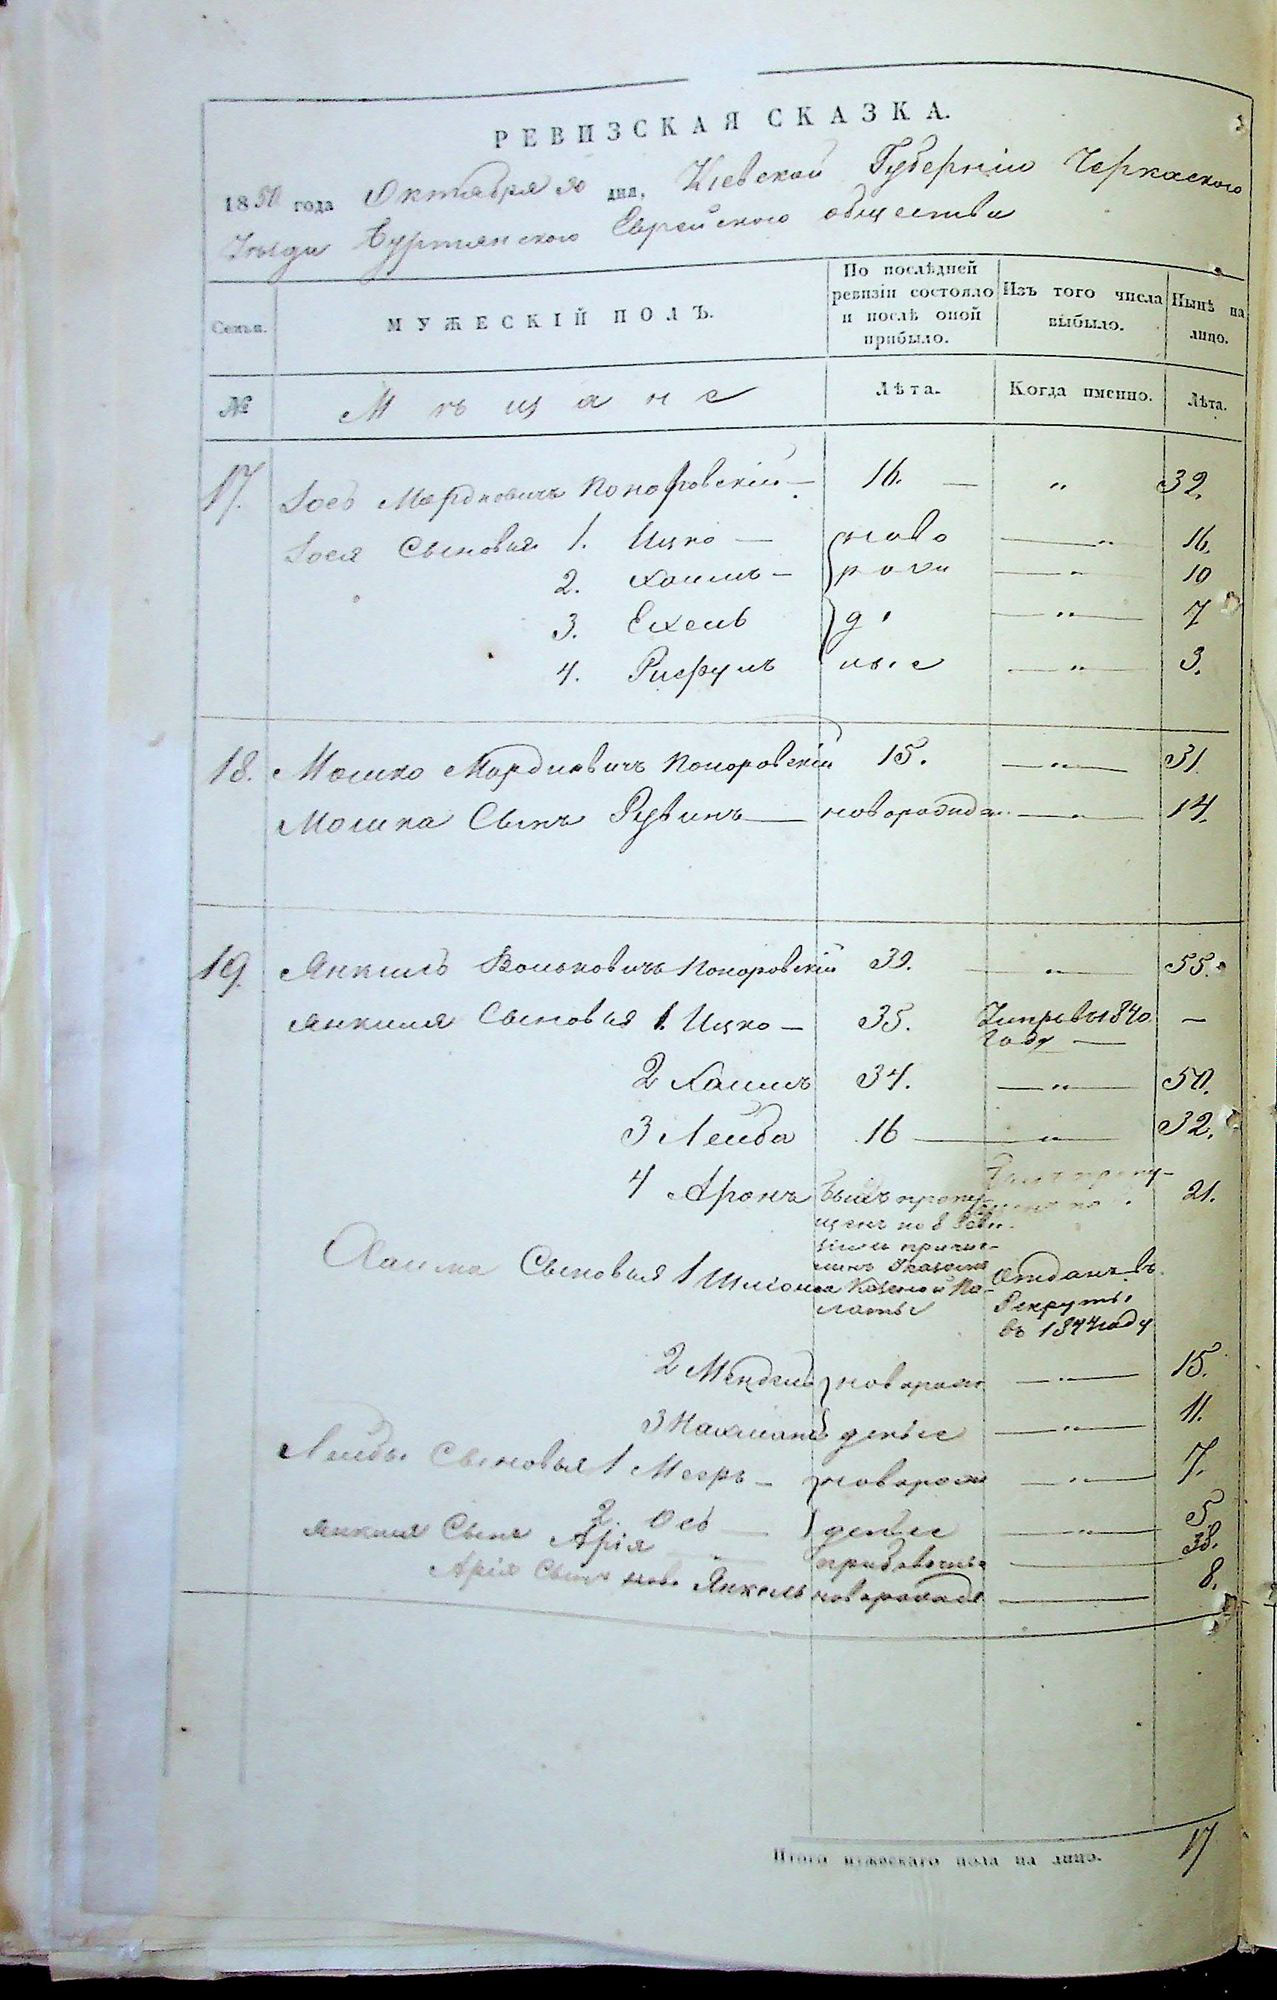 РЕВИЗСКАЯ СКАЗКА.
1850 года Октября 30 дня, Кіевской Губерніи Черкаского
Уѣзда Еврейскаго общества
Семьи.
МУЖЕСКІЙ ПОЛЪ.
По послѣдней ревизіи состояло и послѣ оной прибыло.
Изъ того числа выбыло.
Нынѣ на лицо.
№
Мѣщане
Лѣта.
Когда именно.
Лѣта.
17. Іось Мардковичъ 16. — „ 32.
Іося Сыновья 1. Ицко — ново — „ — 16.
2. Хаимъ — рож — „ — 10
3. Ехель — „ — 7
4. ные — „ — 3.
18. Мошко Мардковичъ Покоровскій 15. — „ — 31
Мошка Сынъ Рувинъ — новорожден. — „ — 14.
19. Янкель Вольковичъ Покоровскій 39. — „ 55.
Янкеля Сыновья 1. Ицко — 35. Умре въ 1840 году — —
2 Хаимъ 34. — „ — 50.
3 Лейба 16 — „ — 32.
4 Аронъ былъ пропущенъ по 8 Реви 21.
зіи и причис-
Хаима Сыновья 1 Казеной Па-
латы
Отданъ въ
Рекруты
въ 1844 году
2 Мендель новорож — „ — 15.
3 Нахманъ деные — „ — 11.
Лейбы Сыновья 1 Меерь — новорож — „ — 7.
2. Ось — деные — „ — 5
Янкеля Сынъ Арія — 38.
Арія Сынъ Янкель новорожде — 8.
Итого мужескаго пола на лицо. 17